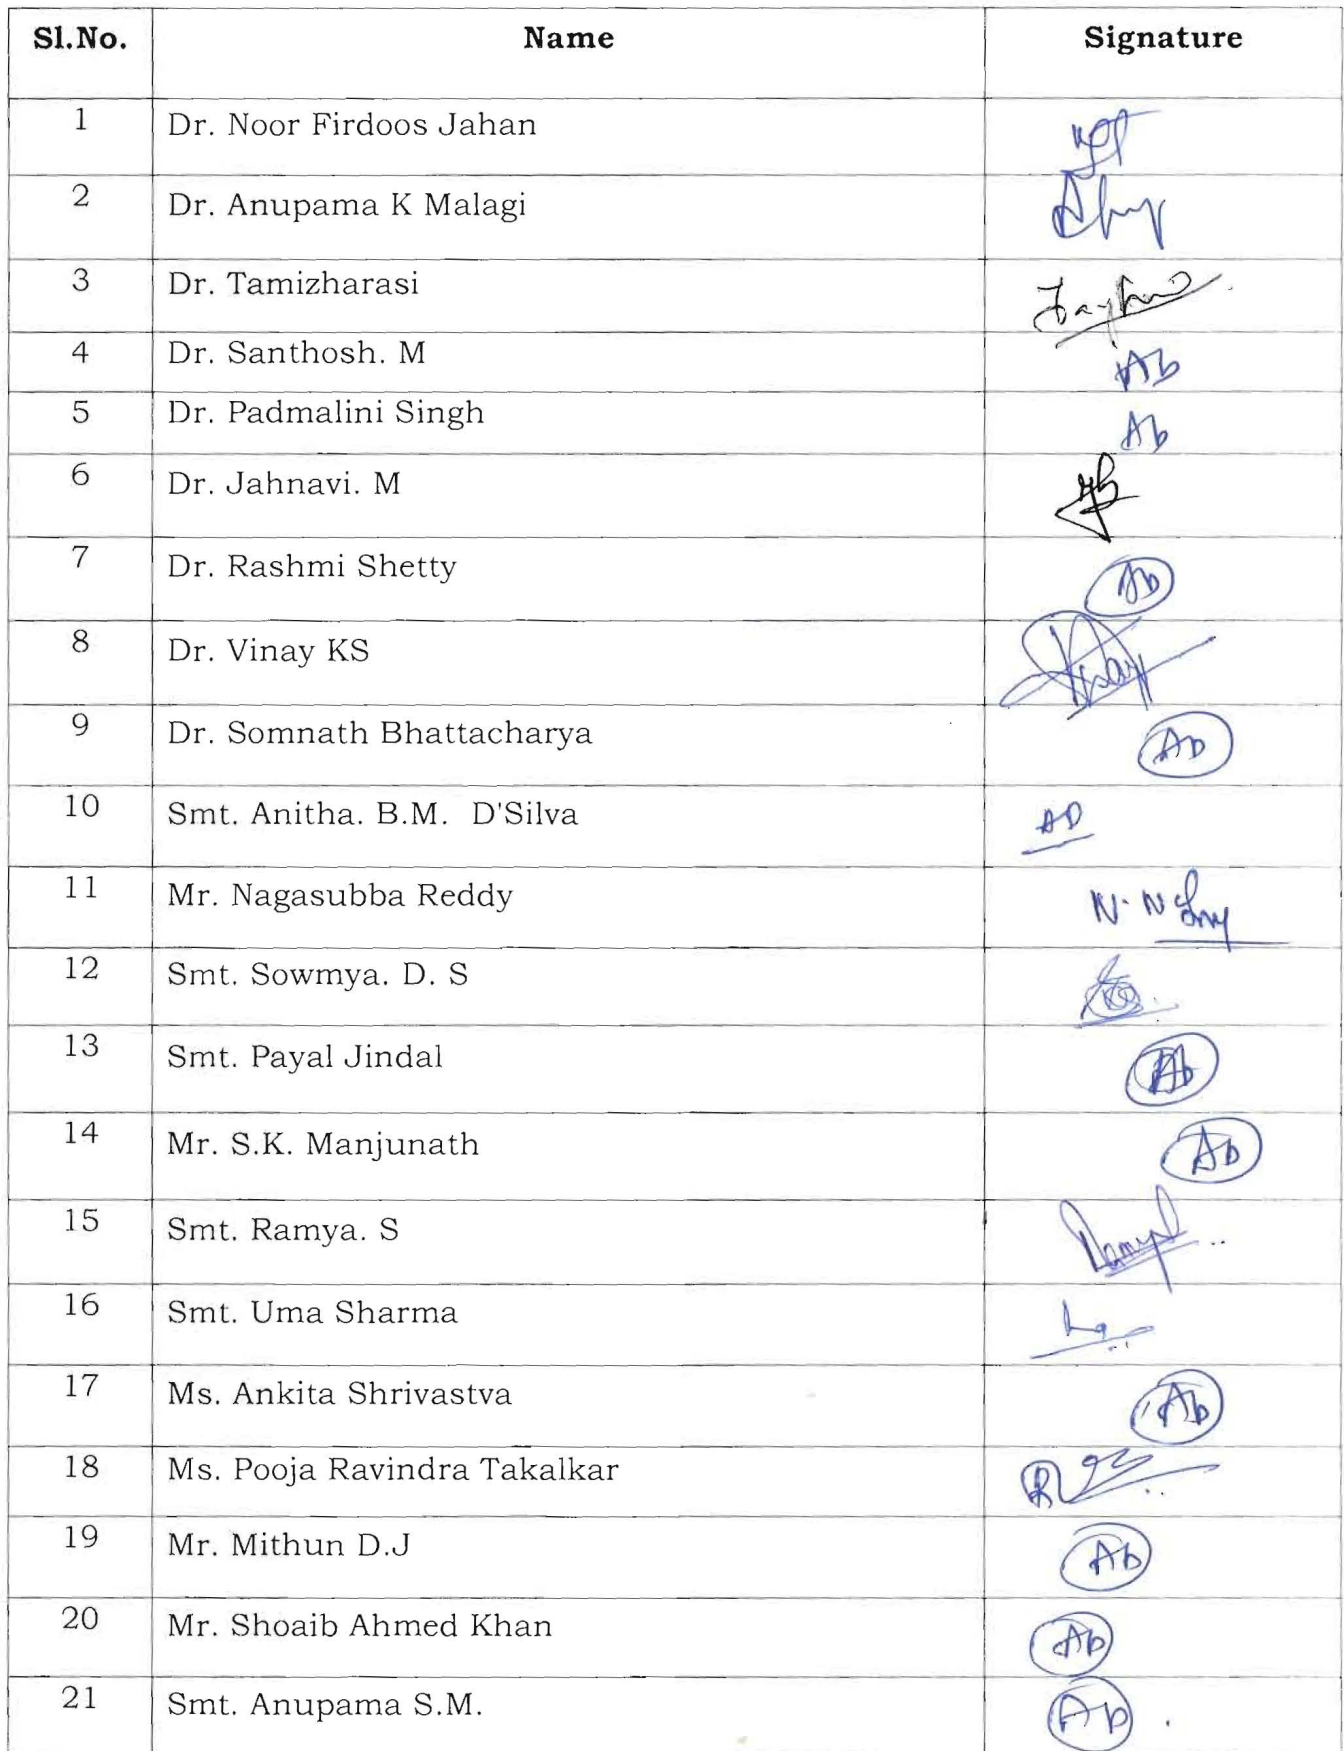 Sl.No. Name Signature
1 Dr. Noor Firdoos Jahan
2 Dr. Anupama K Malagi
3 Dr. Tamizharasi
4 Dr. Santhosh. M Ab
5 Dr. Padmalini Singh Ab
6 Dr. Jahnavi. M
7 Dr. Rashmi Shetty Ab
8 Dr. Vinay KS
9 Dr. Somnath Bhattacharya Ab
10 Smt. Anitha. B.M. D'Silva AD
11 Mr. Nagasubba Reddy
12 Smt. Sowmya. D. S
13 Smt. Payal Jindal Ab
14 Mr. S.K. Manjunath Ab
15 Smt. Ramya. S
16 Smt. Uma Sharma
17 Ms. Ankita Shrivastva Ab
18 Ms. Pooja Ravindra Takalkar
19 Mr. Mithun D.J Ab
20 Mr. Shoaib Ahmed Khan Ab
21 Smt. Anupama S.M. Ab